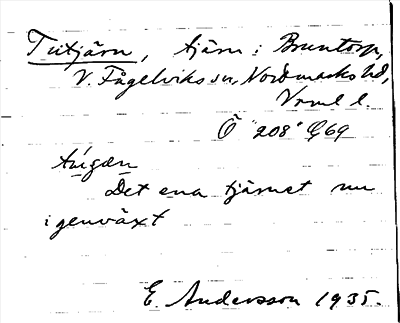 Titjärn, tjärn i Bruntorp,
V. Fågelviks sn, Nordmarks hd,
Vrml l.
Ö "208" G69
Det ena tjärnet nu
igenväxt
E. Andersson 1935.